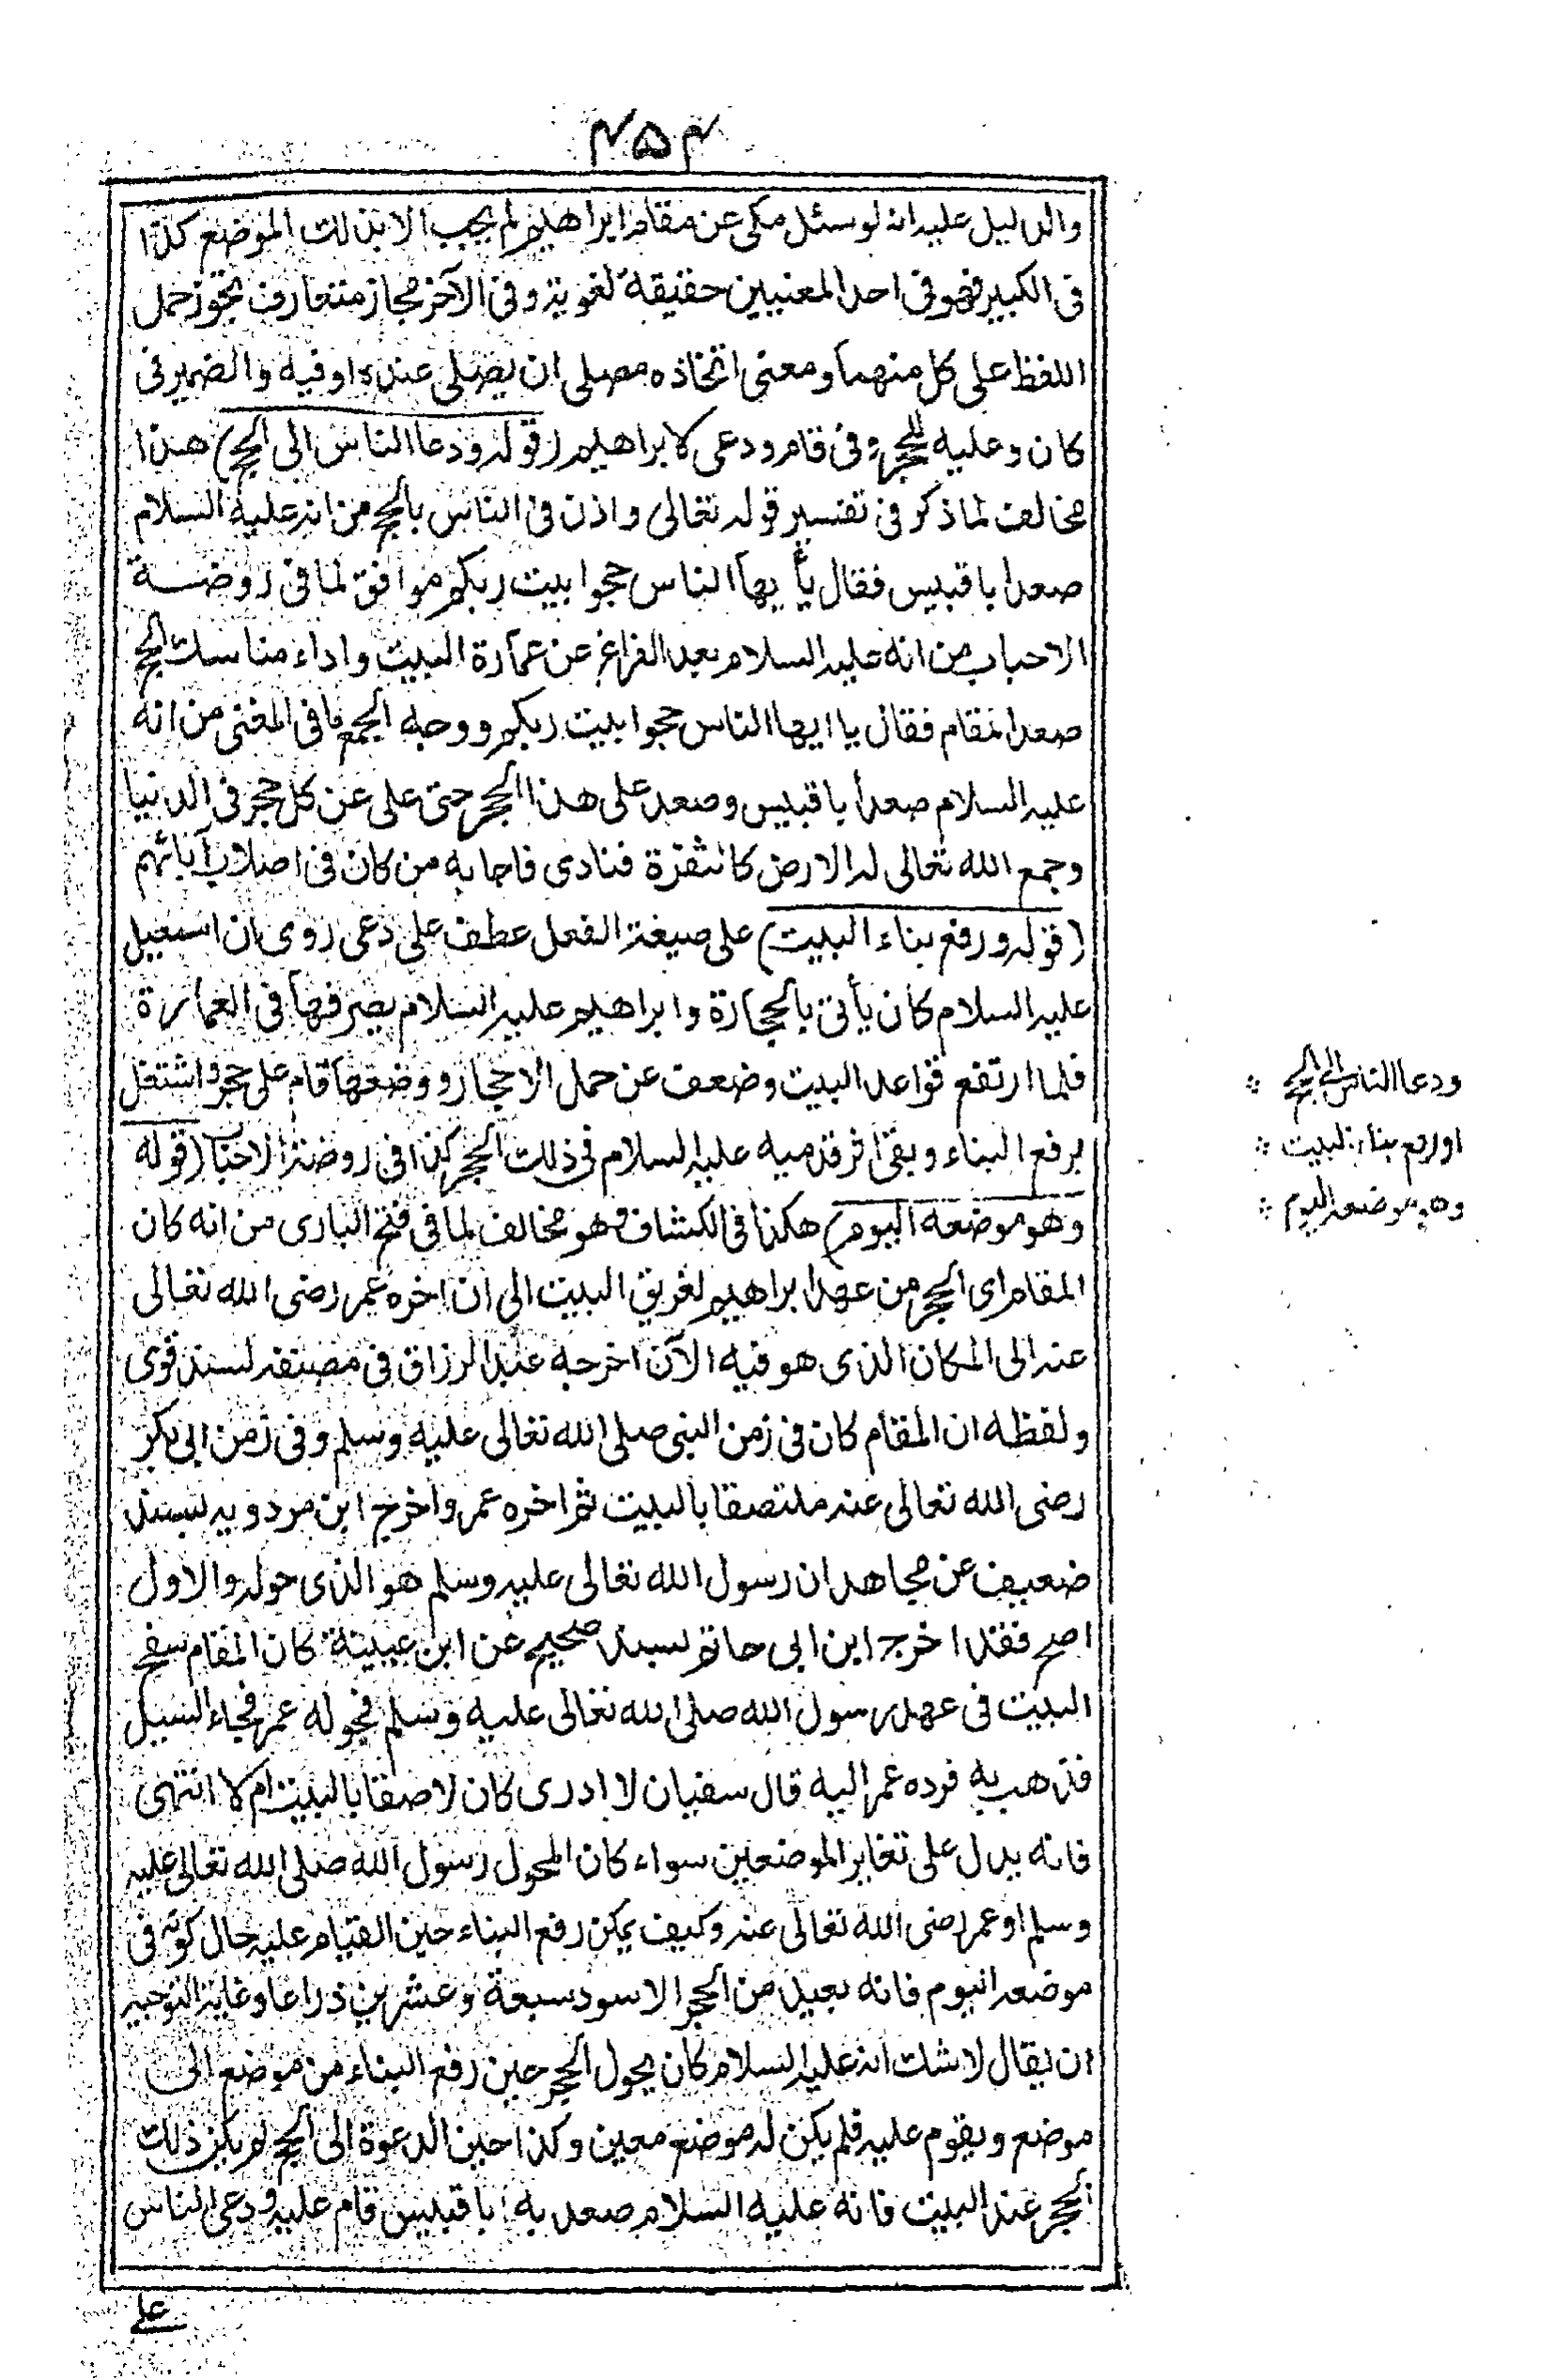 ٤٥٤
والدليل عليه انه لو سئل مكى عن مقام ابراهيم لم يجب الا بذلك الموضع كذا
فى الكبير فهو فى احد المعنيين حقيقة لغوية وفى الآخر مجاز متعارف يجوز حمل
اللفظ على كل منهما ومعنى اتخاذه مصلى ان يصلى عنده او فيه والضمير فى
كان وعليه للحجر وفى قام ودعى لابراهيم (قوله ودعا الناس الى الحج) هذا
مخالف لما ذكر فى تفسير قوله تعالى واذن فى الناس بالحج من انه عليه السلام
صعد ابا قبيس فقال يأيها الناس حجوا بيت ربكم موافق لما فى روضة
الاحباب من انه عليه السلام بعد الفراغ عن عمارة البيت واداء مناسك الحج
صعد المقام فقال يا ايها الناس حجوا بيت ربكم ووجه الجمع ما فى المغنى من انه
عليه السلام صعد ابا قبيس وصعد على هذا الحجر حتى على عن كل حجر فى الدنيا
وجمع الله تعالى له الارض كالسفرة فنادى فاجابه من كان فى اصلاب آبائهم
(قوله ورفع بناء البيت) على صيغة الفعل عطف على دعى روى ان اسمعيل
عليه السلام كان يأتى بالحجارة وابراهيم عليه السلام يصرفها فى العمارة
فلما ارتفع قواعد البيت وضعف عن حمل الاحجار ووضعها قام على حجر واشتغل
برفع البناء وبقى اثر قدميه عليه السلام فى ذلك الحجر كذا فى روضة الاحباب (قوله
وهو موضعه اليوم) هكذا فى الكشاف وهو مخالف لما فى فتح البارى من انه كان
المقام اى الحجر من عهد ابراهيم لغريق البيت الى ان اخره عمر رضى الله تعالى
عنه الى المكان الذى هو فيه الآن اخرجه عبد الرزاق فى مصنفه لسند قوى
ولفظه ان المقام كان فى زمن النبى صلى الله تعالى عليه وسلم وفى زمن ابى بكر
رضى الله تعالى عنه ملتصقا بالبيت ثم اخره عمر واخرج ابن مردويه بسند
ضعيف عن مجاهد ان رسول الله تعالى عليه وسلم هو الذى حوله والاول
اصح فقد اخرج ابن ابى حاتم بسند صحيح عن ابن عيينة كان المقام سفح
البيت فى عهد رسول الله صلى الله تعالى عليه وسلم فحوله عمر فجاء السيل
فذهب به فرده عمر اليه قال سفيان لا ادرى كان لاصقا بالبيت ام لا انتهى
فانه يدل على تغاير الموضعين سواء كان المحول رسول الله صلى الله تعالى عليه
وسلم او عمر رضى الله تعالى عنه وكيف يمكن رفع البناء حين القيام عليه حال كونه فى
موضعه اليوم فانه بعيد من الحجر الاسود سبعة وعشرين ذراعا وغاية التوجيه
ان يقال لا شك انه عليه السلام كان يحول الحجر حين رفع البناء من موضع الى
موضع ويقوم عليه فلم يكن له موضع معين وكذا حين الدعوة الى الحج لم يكن ذلك
الحجر عند البيت فانه عليه السلام صعد به ابا قبيس قام عليه ودعى الناس
على
ودعا الناس الى الحج
او رفع بناء البيت
وهو موضعه اليوم